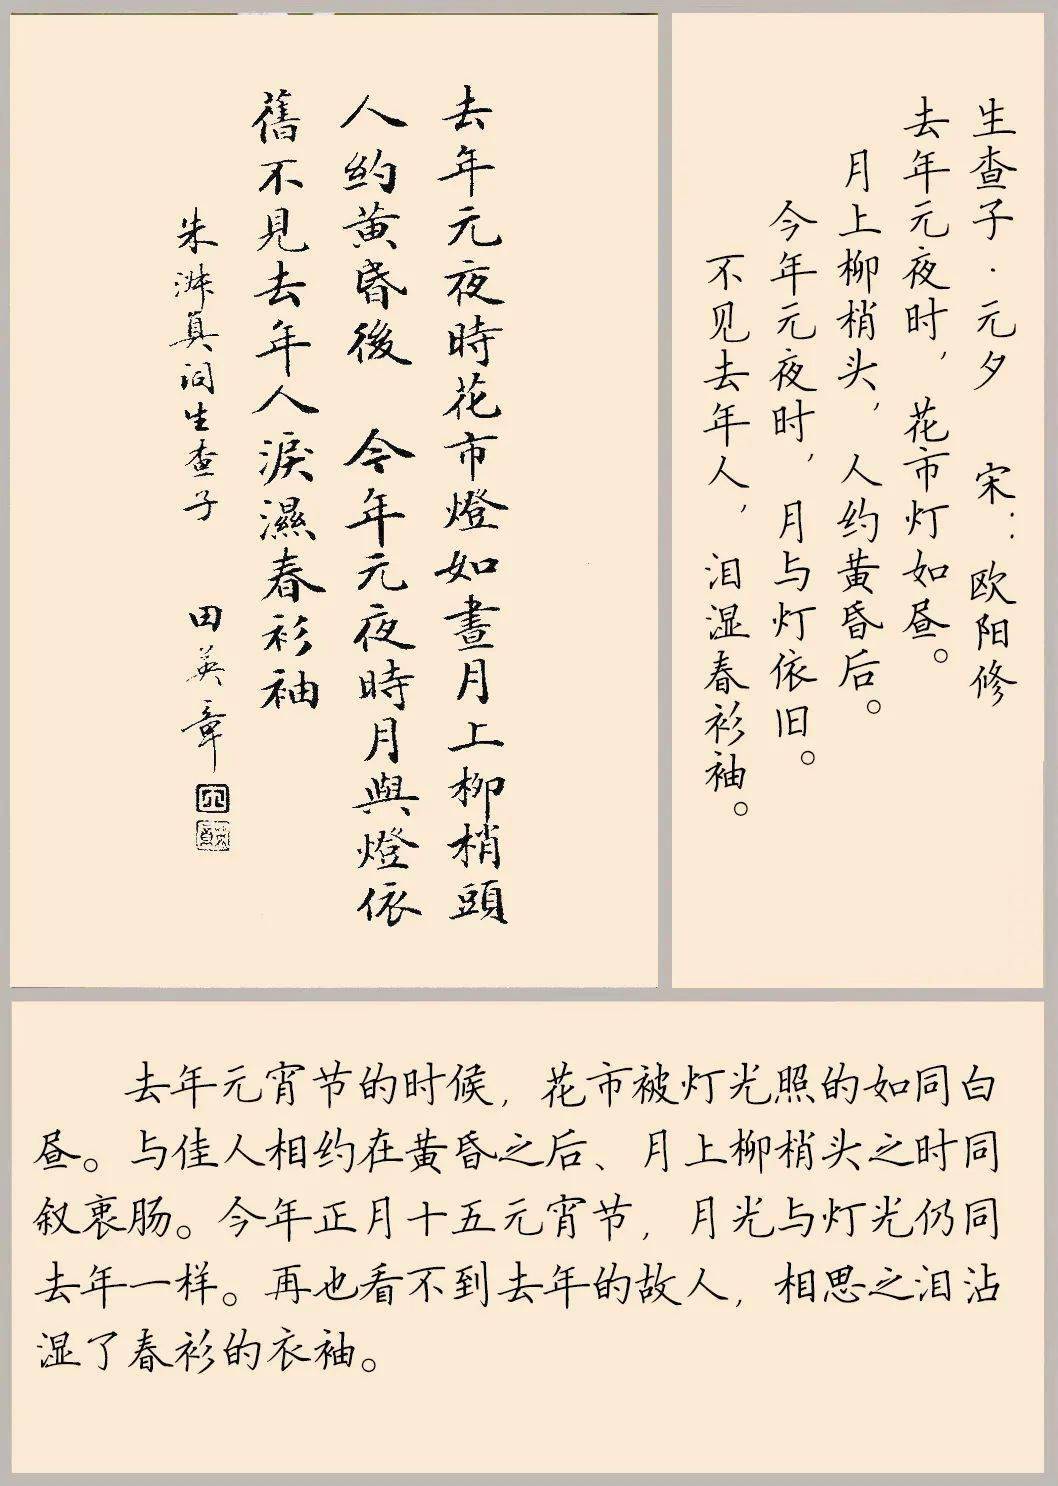 去年元夜時花市燈如晝月上柳梢頭
人約黄昏後　今年元夜時月與燈依
舊不見去年人淚濕春衫袖
朱淑真词生查子　田英章
生查子·元夕　宋：欧阳修
去年元夜时，花市灯如昼。
月上柳梢头，人约黄昏后。
今年元夜时，月与灯依旧。
不见去年人，泪湿春衫袖。
去年元宵节的时候，花市被灯光照的如同白
昼。与佳人相约在黄昏之后、月上柳梢头之时同
叙衷肠。今年正月十五元宵节，月光与灯光仍同
去年一样。再也看不到去年的故人，相思之泪沾
湿了春衫的衣袖。